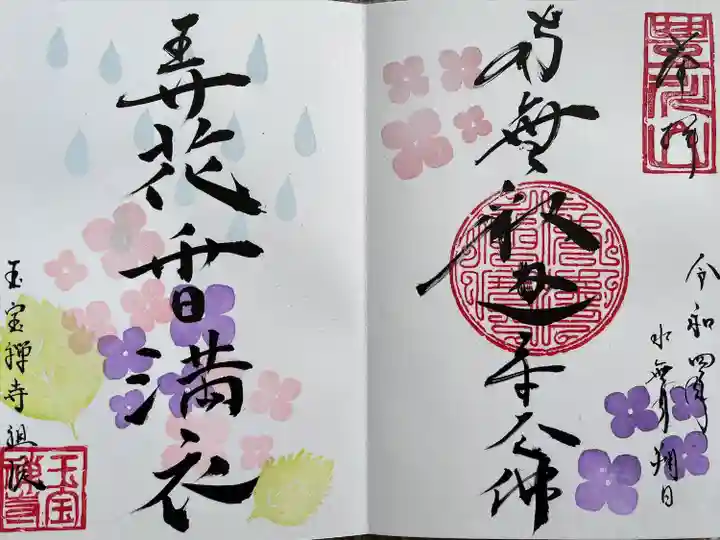 奉拝
南無釈迦牟尼佛
令和四年
水無月朔日
弄花香満衣
玉宝禅寺
玉宝禅寺